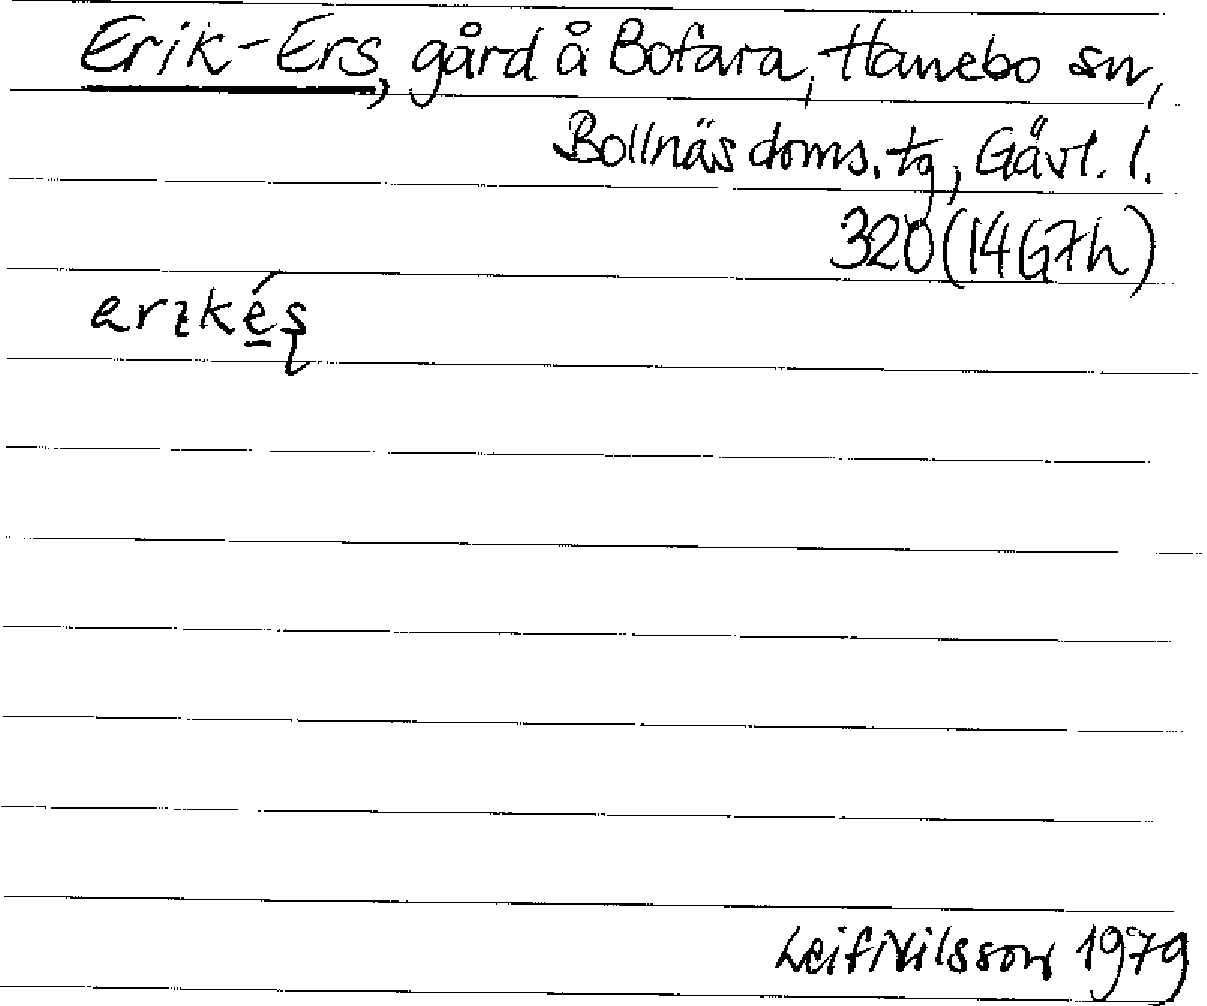 Erik-Ers, gård å Bofara, Hanebo sn,
Bollnäs doms. tg, Gävl. l.
320 (14G7h)
erɩkés̨
Leif Nilsson 1979